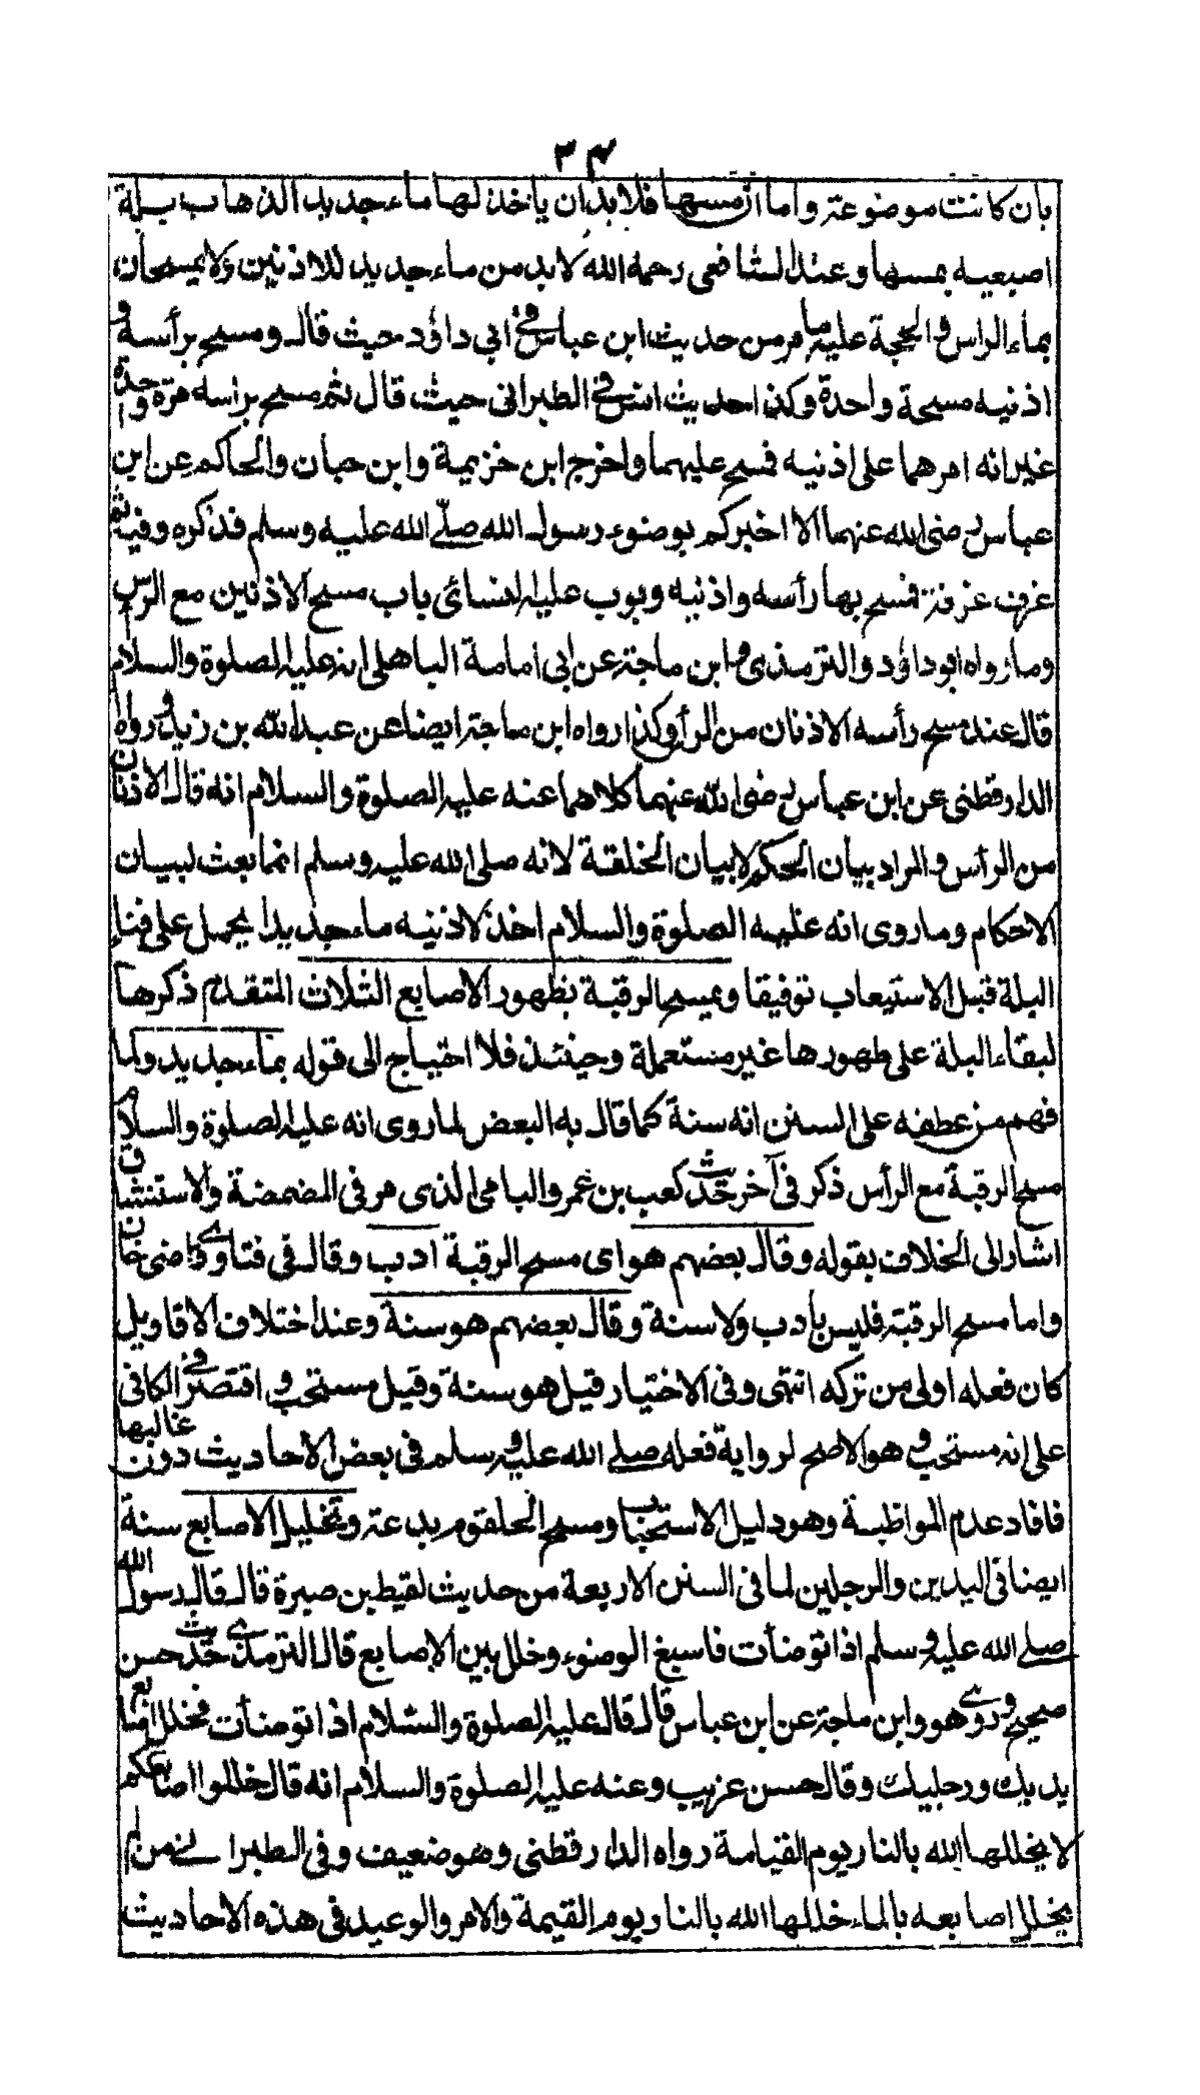 ٣٤
بان كانت موضوعة واما ان مسها فلا بد ان ياخذ لها ماء جديد الذهاب بلة
اصبعيه بمسها وعند الشافعى رحمه الله لا بد من ماء جديد للاذنين ولا يمسحان
بماء الراس والحجة عليه ما مر من حديث ابن عباس فى ابى داؤد حيث قال ومسح برأسه و
اذنيه مسحة واحدة وكذا حديث انس فى الطبرانى حيث قال ثم مسح براسه مرة واحدة
غير انه امرهما على اذنيه فمسح عليهما واخرج ابن خزيمة وابن حبان والحاكم عن ابن
عباس رضى الله عنهما الا اخبركم بوضوء رسول الله صلے الله عليه وسلم فذكره وفيه ثم
غرف غرفة فمسح بها رأسه واذنيه وبوب عليه النسائى باب مسح الاذنين مع الرأس
وما رواه ابو داؤد والترمذى وابن ماجة عن ابى امامة الباهلى انه عليه الصلوة والسلام
قال عند مسح رأسه الاذنان من الرأس وكذا رواه ابن ماجة ايضا عن عبد الله بن زيد ورواه
الدارقطنى عن ابن عباس رضى الله عنهما كلاهما عنه عليه الصلوة والسلام انه قال الاذنان
من الرأس والمراد بيان الحكم لا بيان الخلقة لانه صلى الله عليه وسلم انما بعث لبيان
الاحكام وما روى انه عليه الصلوة والسلام اخذ لاذنيه ماء جديدا يحمل على فناء
البلة قبل الاستيعاب توفيقا ويمسح الرقبة بظهور الاصابع الثلاث المتقدم ذكرها
لبقاء البلة على ظهورها غير مستعملة وحينئذ فلا احتياج الى قوله بماء جديد ولما
فهم من عطفه على السنن انه سنة كما قال به البعض لما روى انه عليه الصلوة والسلام
مسح الرقبة مع الرأس ذكر فى آخر حديث كعب بن عمرو اليامى الذى مر فى المضمضة والاستنشاق
اشار الى الخلاف بقوله وقال بعضهم هو اى مسح الرقبة ادب وقال فى فتاوے قاضى خان
واما مسح الرقبة فليس بأدب ولا سنة وقال بعضهم هو سنة وعند اختلاف الاقاويل
كان فعله اولى من تركه انتهى وفى الاختيار قيل هو سنة وقيل مستحب واقتصر فى الكافى
على انه مستحب وهو الاصح لرواية فعله صلے الله عليه وسلم فى بعض الاحاديث دون غالبها
فافاد عدم المواظبة وهو دليل الاستحباب ومسح الحلقوم بدعة وتخليل الاصابع سنة
ايضا فى اليدين والرجلين لما فى السنن الاربعة من حديث لقيط بن صبرة قال قال رسول الله
صلے الله عليه وسلم اذا توضأت فاسبغ الوضوء وخلل بين الاصابع قال الترمذے حديث حسن
صحيح وروى هو وابن ماجة عن ابن عباس قال قال عليه الصلوة والسلام اذا توضأت فخلل اصابع
يديك ورجليك وقال حسن غريب وعنه عليه الصلوة والسلام انه قال خللوا اصابعكم
لا يخللها الله بالنار يوم القيامة رواه الدارقطنى وهو ضعيف وفى الطبرانے من لم
يخلل اصابعه بالماء خللها الله بالنار يوم القيمة والامر والوعيد فى هذه الاحاديث